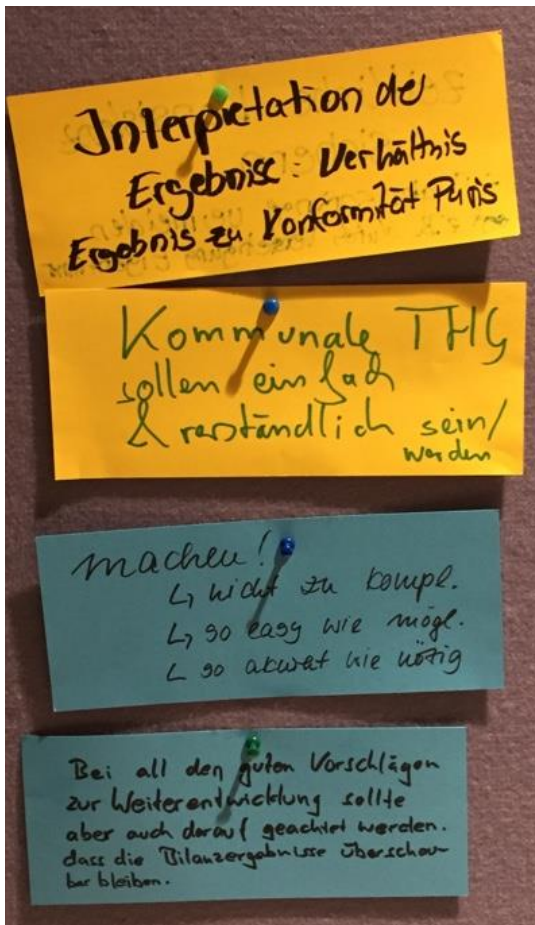 Interpretation de
Ergebnise: Verhältnis
Ergebnis zu Konformität Paris
Kommunale THG
sollen einfach
& verständlich sein/
werden
machen!
↳ nicht zu kompl.
↳ so easy wie mögl.
↳ so akurat wie nötig
Bei all den guten Vorschlägen
zur Weiterentwicklung sollte
aber auch darauf geachtet werden.
dass die Bilanzergebnisse überschau-
bar bleiben.